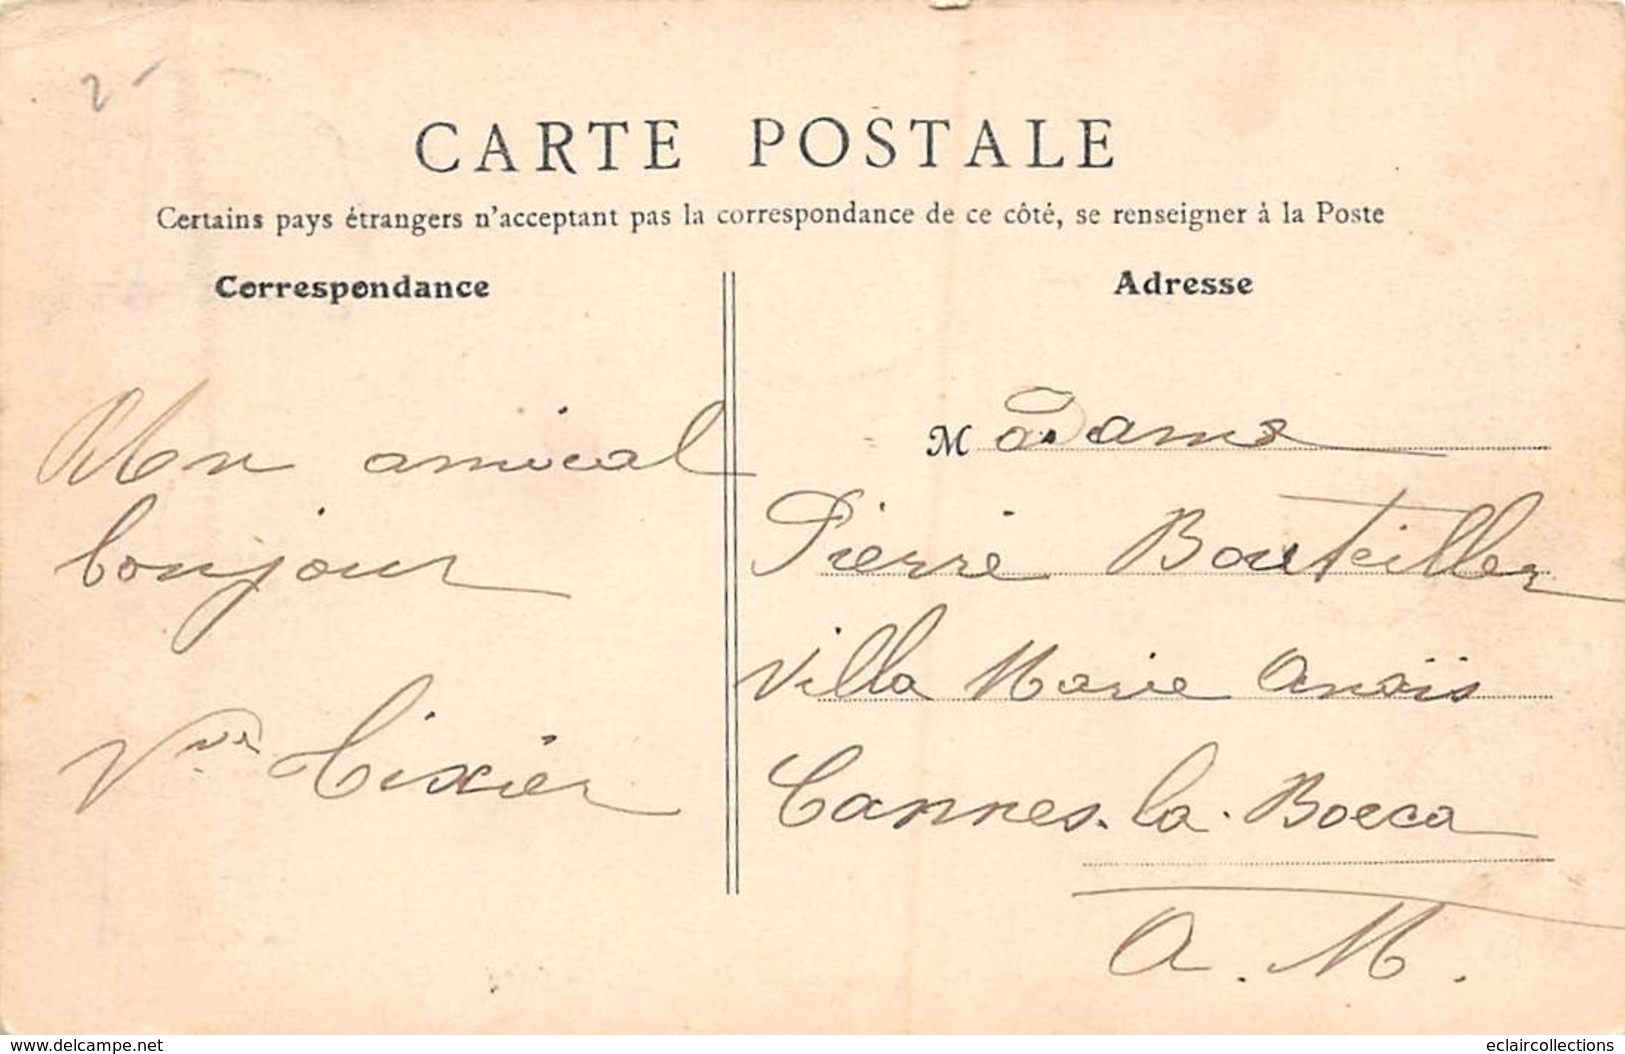 2-
CARTE POSTALE
Certains pays étrangers n'acceptant pas la correspondance de ce côté, se renseigner à la Poste
Correspondance
Adresse
Mon amical
bonjour
Vve Tixier
Madame
Pierre Bouteiller
Villa Marie Anaïs
Cannes-la-Bocca
A.M.
www.delcampe.net
eclaircollections